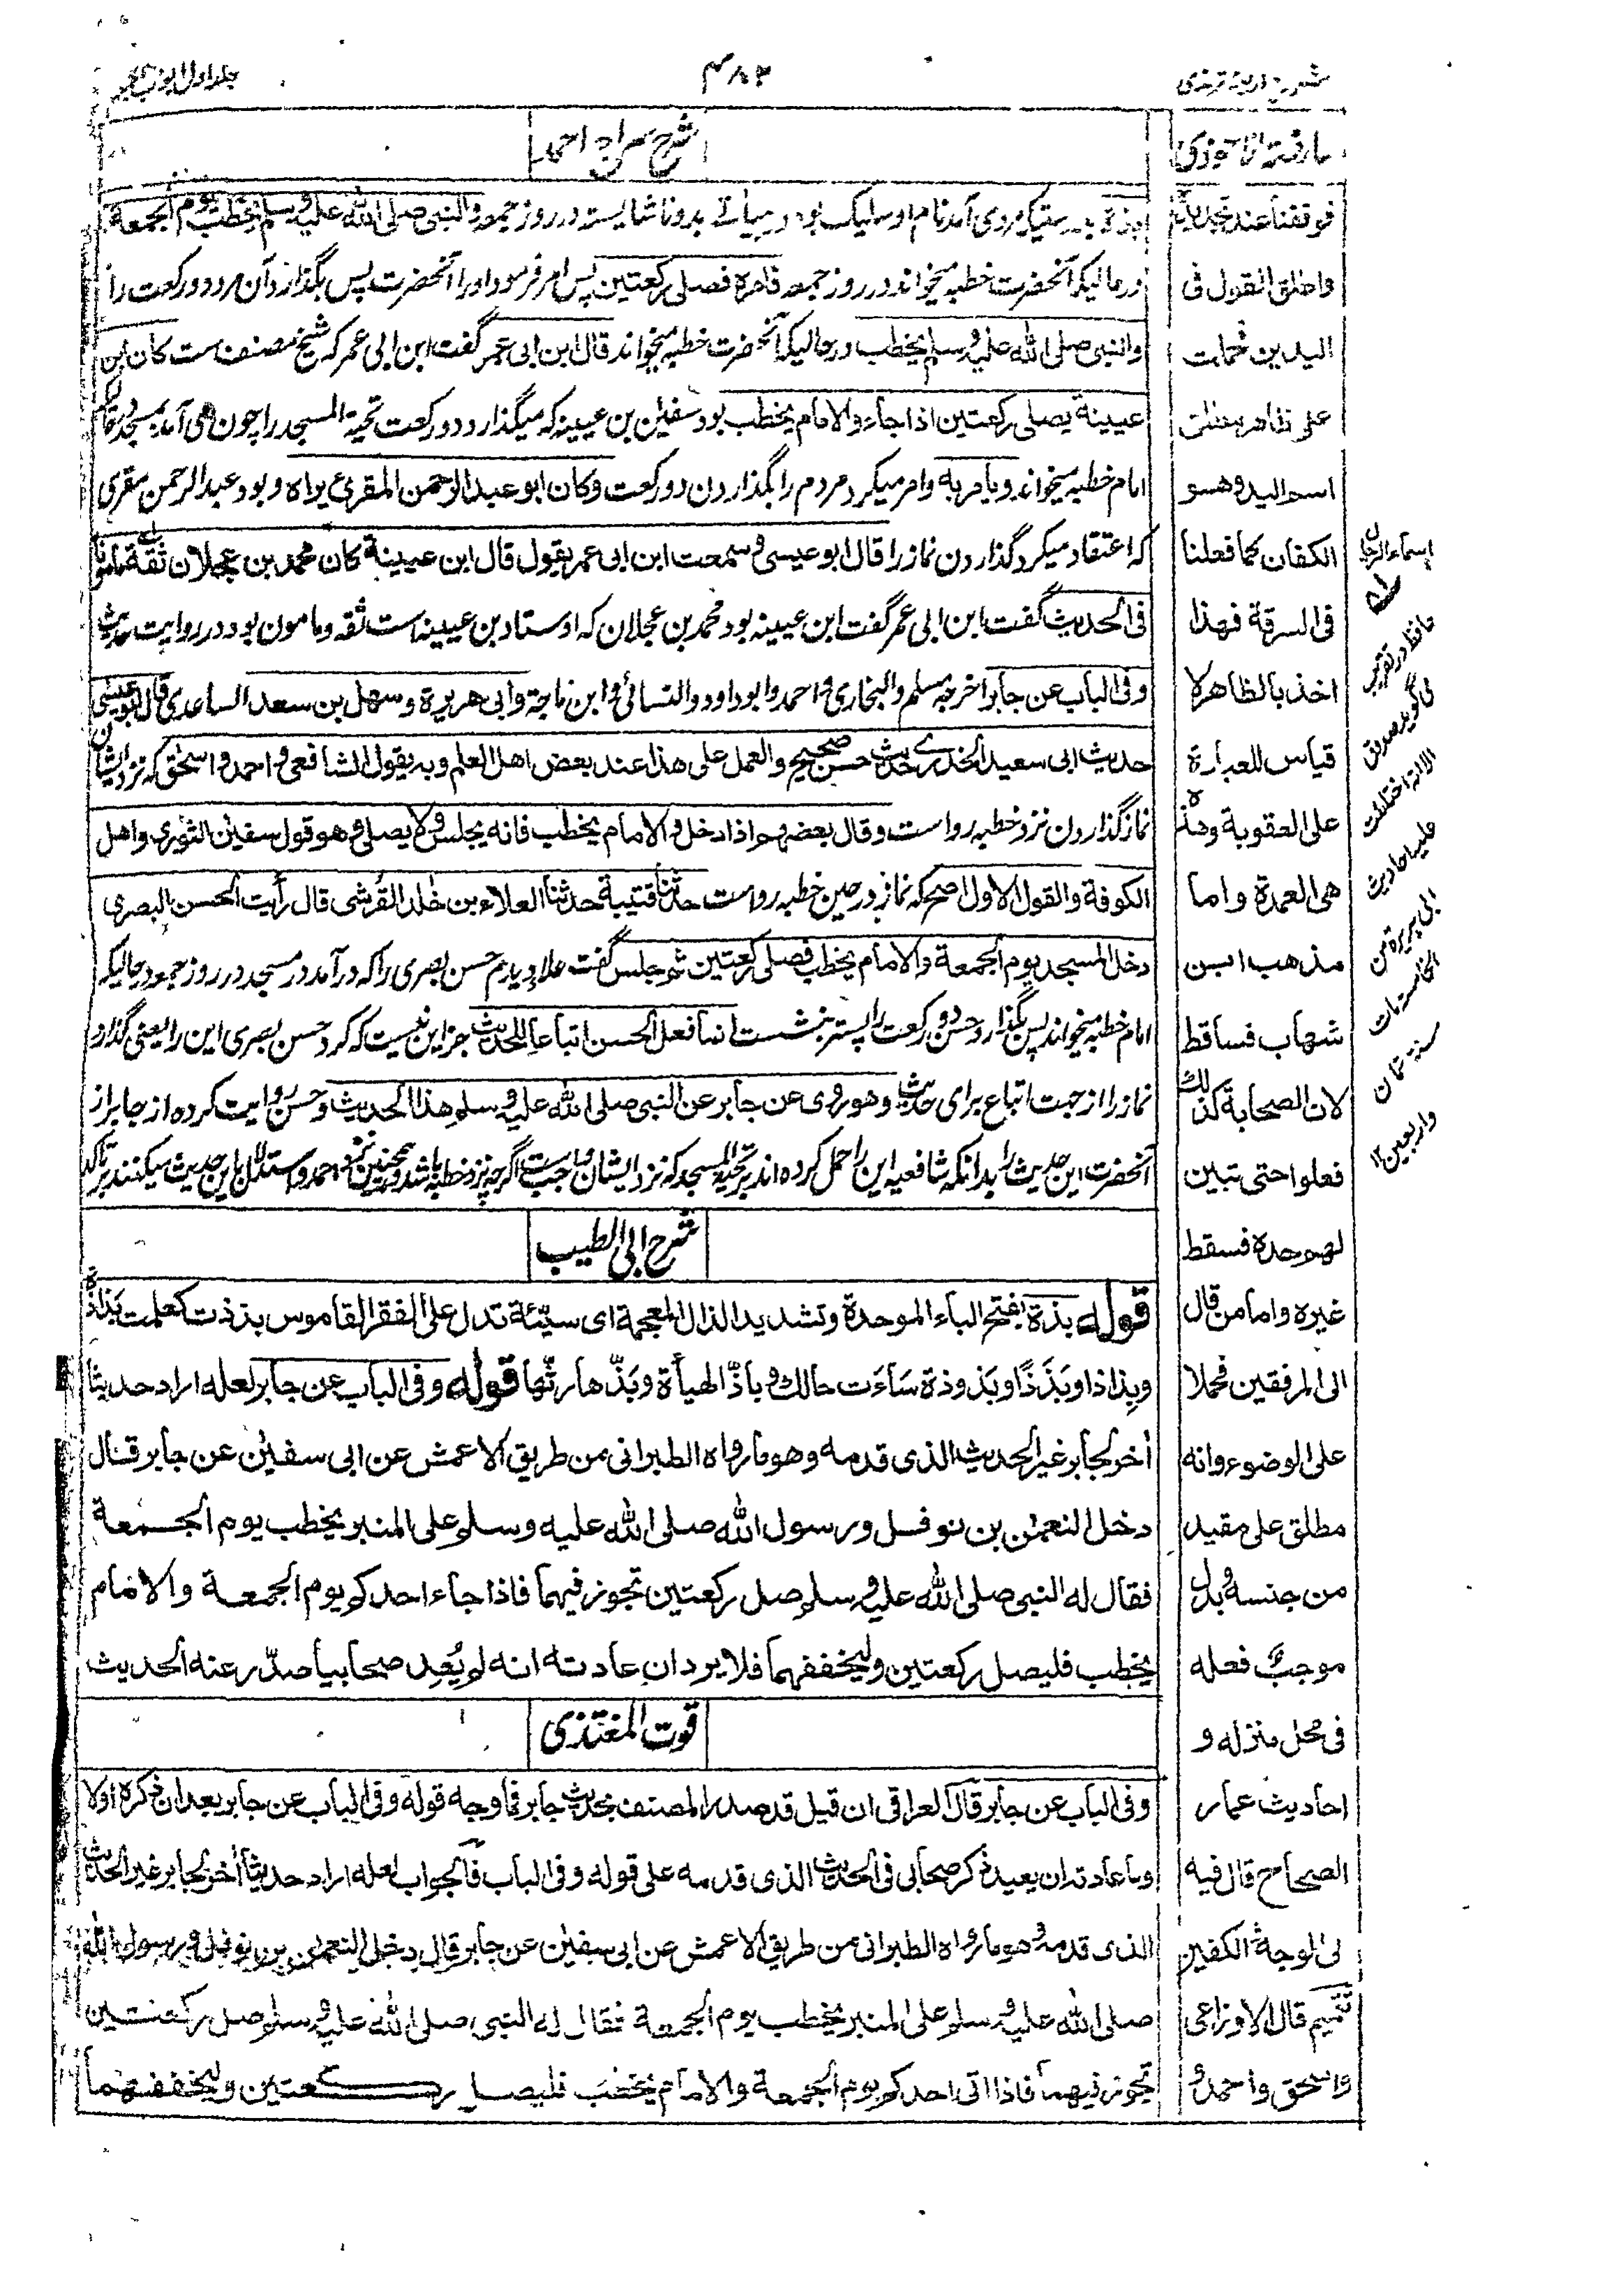 شرح اربعه ترمذی
۴۸۲
جلد اول ابواب الجمعه
شرح سراج احمد
بذة در میانے بد و ناشایسته در روز جمعه والنبی صلی الله علیه وسلم یخطب یوم الجمعة
در حالیکه آنحضرت خطبه میخواند در روز جمعه فامره فصلی رکعتین پس امر فرمود او را آنحضرت پس بگذارد آن مرد دو رکعت را
والنبی صلی الله علیه وسلم یخطب در حالیکه آنحضرت خطبه میخواند قال ابن ابی عمر گفت ابن ابی عمر که شیخ مصنف ست کان ابن
عیینة یصلی رکعتین اذا جاء والامام یخطب بود سفین بن عیینه که میگذارد دو رکعت تحیة المسجد را چون می آمد بمسجد
امام خطبه میخواند ویأمر به وامر میکرد مردم را بگذاردن دو رکعت وکان ابو عبد الرحمن المقرئ یراه وبود عبد الرحمن مقری
که اعتقاد میکرد گذاردن نماز را قال ابو عیسی وسمعت ابن ابی عمر یقول قال ابن عیینة کان محمد بن عجلان ثقة مامونا
فی الحدیث گفت ابن ابی عمر گفت ابن عیینه بود محمد بن عجلان که اوستاد بن عیینه است ثقه ومامون بود در روایت حدیث
وفی الباب عن جابر اخرجه مسلم والبخاری واحمد وابو داود والنسائی وابن ماجة وابی هریرة وسهل بن سعد الساعدی قال ابو عیسی
حدیث ابی سعید الخدرے حدیث حسن صحیح والعمل علی هذا عند بعض اهل العلم وبه یقول الشافعی واحمد واسحق که نزد ایشان
نماز گذاردن نزد خطبه رواست وقال بعضهم اذا دخل والامام یخطب فانه یجلس ولا یصلی وهو قول سفین الثوری واهل
الکوفة والقول الاول اصح که نماز در حین خطبه رواست حدثنا قتیبة حدثنا العلاء بن خلد القرشی قال رأیت الحسن البصری
دخل المسجد یوم الجمعة والامام یخطب فصلی رکعتین ثم جلس گفت علاء دیدم حسن بصری را که در آمد در مسجد در روز جمعه در حالیکه
امام خطبه میخواند پس بگذارد حسن دو رکعت را پستر بنشست انما فعل الحسن اتباعا للحدیث جز این نیست که کرد حسن بصری این را یعنی گذارد
نماز را از جهت اتباع برای حدیث وهو روی عن جابر عن النبی صلی الله علیه وسلم هذا الحدیث وحسن روایت کرده از جابر از
آنحضرت این حدیث را بدانکه شافعیه این را حمل کرده اند بر تحیة المسجد که نزد ایشان واجب ست اگرچه نزد خطبه باشد وهمچنین نزد احمد واستدلال باین حدیث میکنند بر تاکد
شرح ابی الطیب
قوله بذة بفتح الباء الموحدة وتشدید الذال المعجمة ای سیّئة تدل علی الفقر القاموس بذذت کعلمت بَذاذَة
وبِذاذا وبَذَذًا وبَذوذة سَاءَت حالك وباذّ الهیأة وبَذّها رثّها قوله وفی الباب عن جابر لعله اراد حدیثا
أخر لجابر غیر الحدیث الذی قدمه وهو ما رواه الطبرانی من طریق الاعمش عن ابی سفین عن جابر قال
دخل النعمن بن نوفل ورسول الله صلی الله علیه وسلم علی المنبر یخطب یوم الجمعة
فقال له النبی صلی الله علیه وسلم صل رکعتین تجوز فیهما فاذا جاء احدکم یوم الجمعة والامام
یخطب فلیصل رکعتین ولیخففهما فلا یرد ان عادته انه لم یُعِد صحابیا صدّر عنه الحدیث
قوت المغتذی
وفی الباب عن جابر قال العراقی ان قیل قد صدر المصنف بحدیث جابر فما وجه قوله وفی الباب عن جابر بعد ان ذکره اولا
وما عادته ان یعید ذکر صحابی فی الحدیث الذی قدمه علی قوله وفی الباب فالجواب لعله اراد حدیثا أخر لجابر غیر الحدیث
الذی قدمه وهو ما رواه الطبرانی من طریق الاعمش عن ابی سفین عن جابر قال دخل النعمن بن نوفل ورسول الله
صلی الله علیه وسلم علی المنبر یخطب یوم الجمعة فقال له النبی صلی الله علیه وسلم صل رکعتین
تجوز فیهما فاذا اتی احدکم یوم الجمعة والامام یخطب فلیصل رکعتین ولیخففهما
عارضة الاحوذی
فوقفنا عند
واطلق القول فی
الیدین فحملت
علی ظاهر مطلق
اسم الید وهو
الکفان کما فعلنا
فی السرقة فهذا
اخذ بالظاهر لا
قیاس للعبارة
علی العقوبة وهذه
هی العمدة واما
مذهب ابن
شهاب فساقط
لان الصحابة کذلك
فعلوا حتی تبین
لهم حده فسقط
غیره واما من قال
الی المرفقین فحملا
علی الوضوء وانه
مطلق علی مقید
من جنسه وبدل
موجبه فعله
فی محل منزله و
احادیث عمار
الصحاح قال فیه
لی الوجه والکفین
تتمیم قال الاوزاعی
واسحق واحمد و
اسماء الرجال
حافظ در تقریب
می گوید صدوق
الا انه اختلطت
علیه احادیث
ابی هریرة من
الخامسة مات
سنة ثمان
واربعین ۱۲